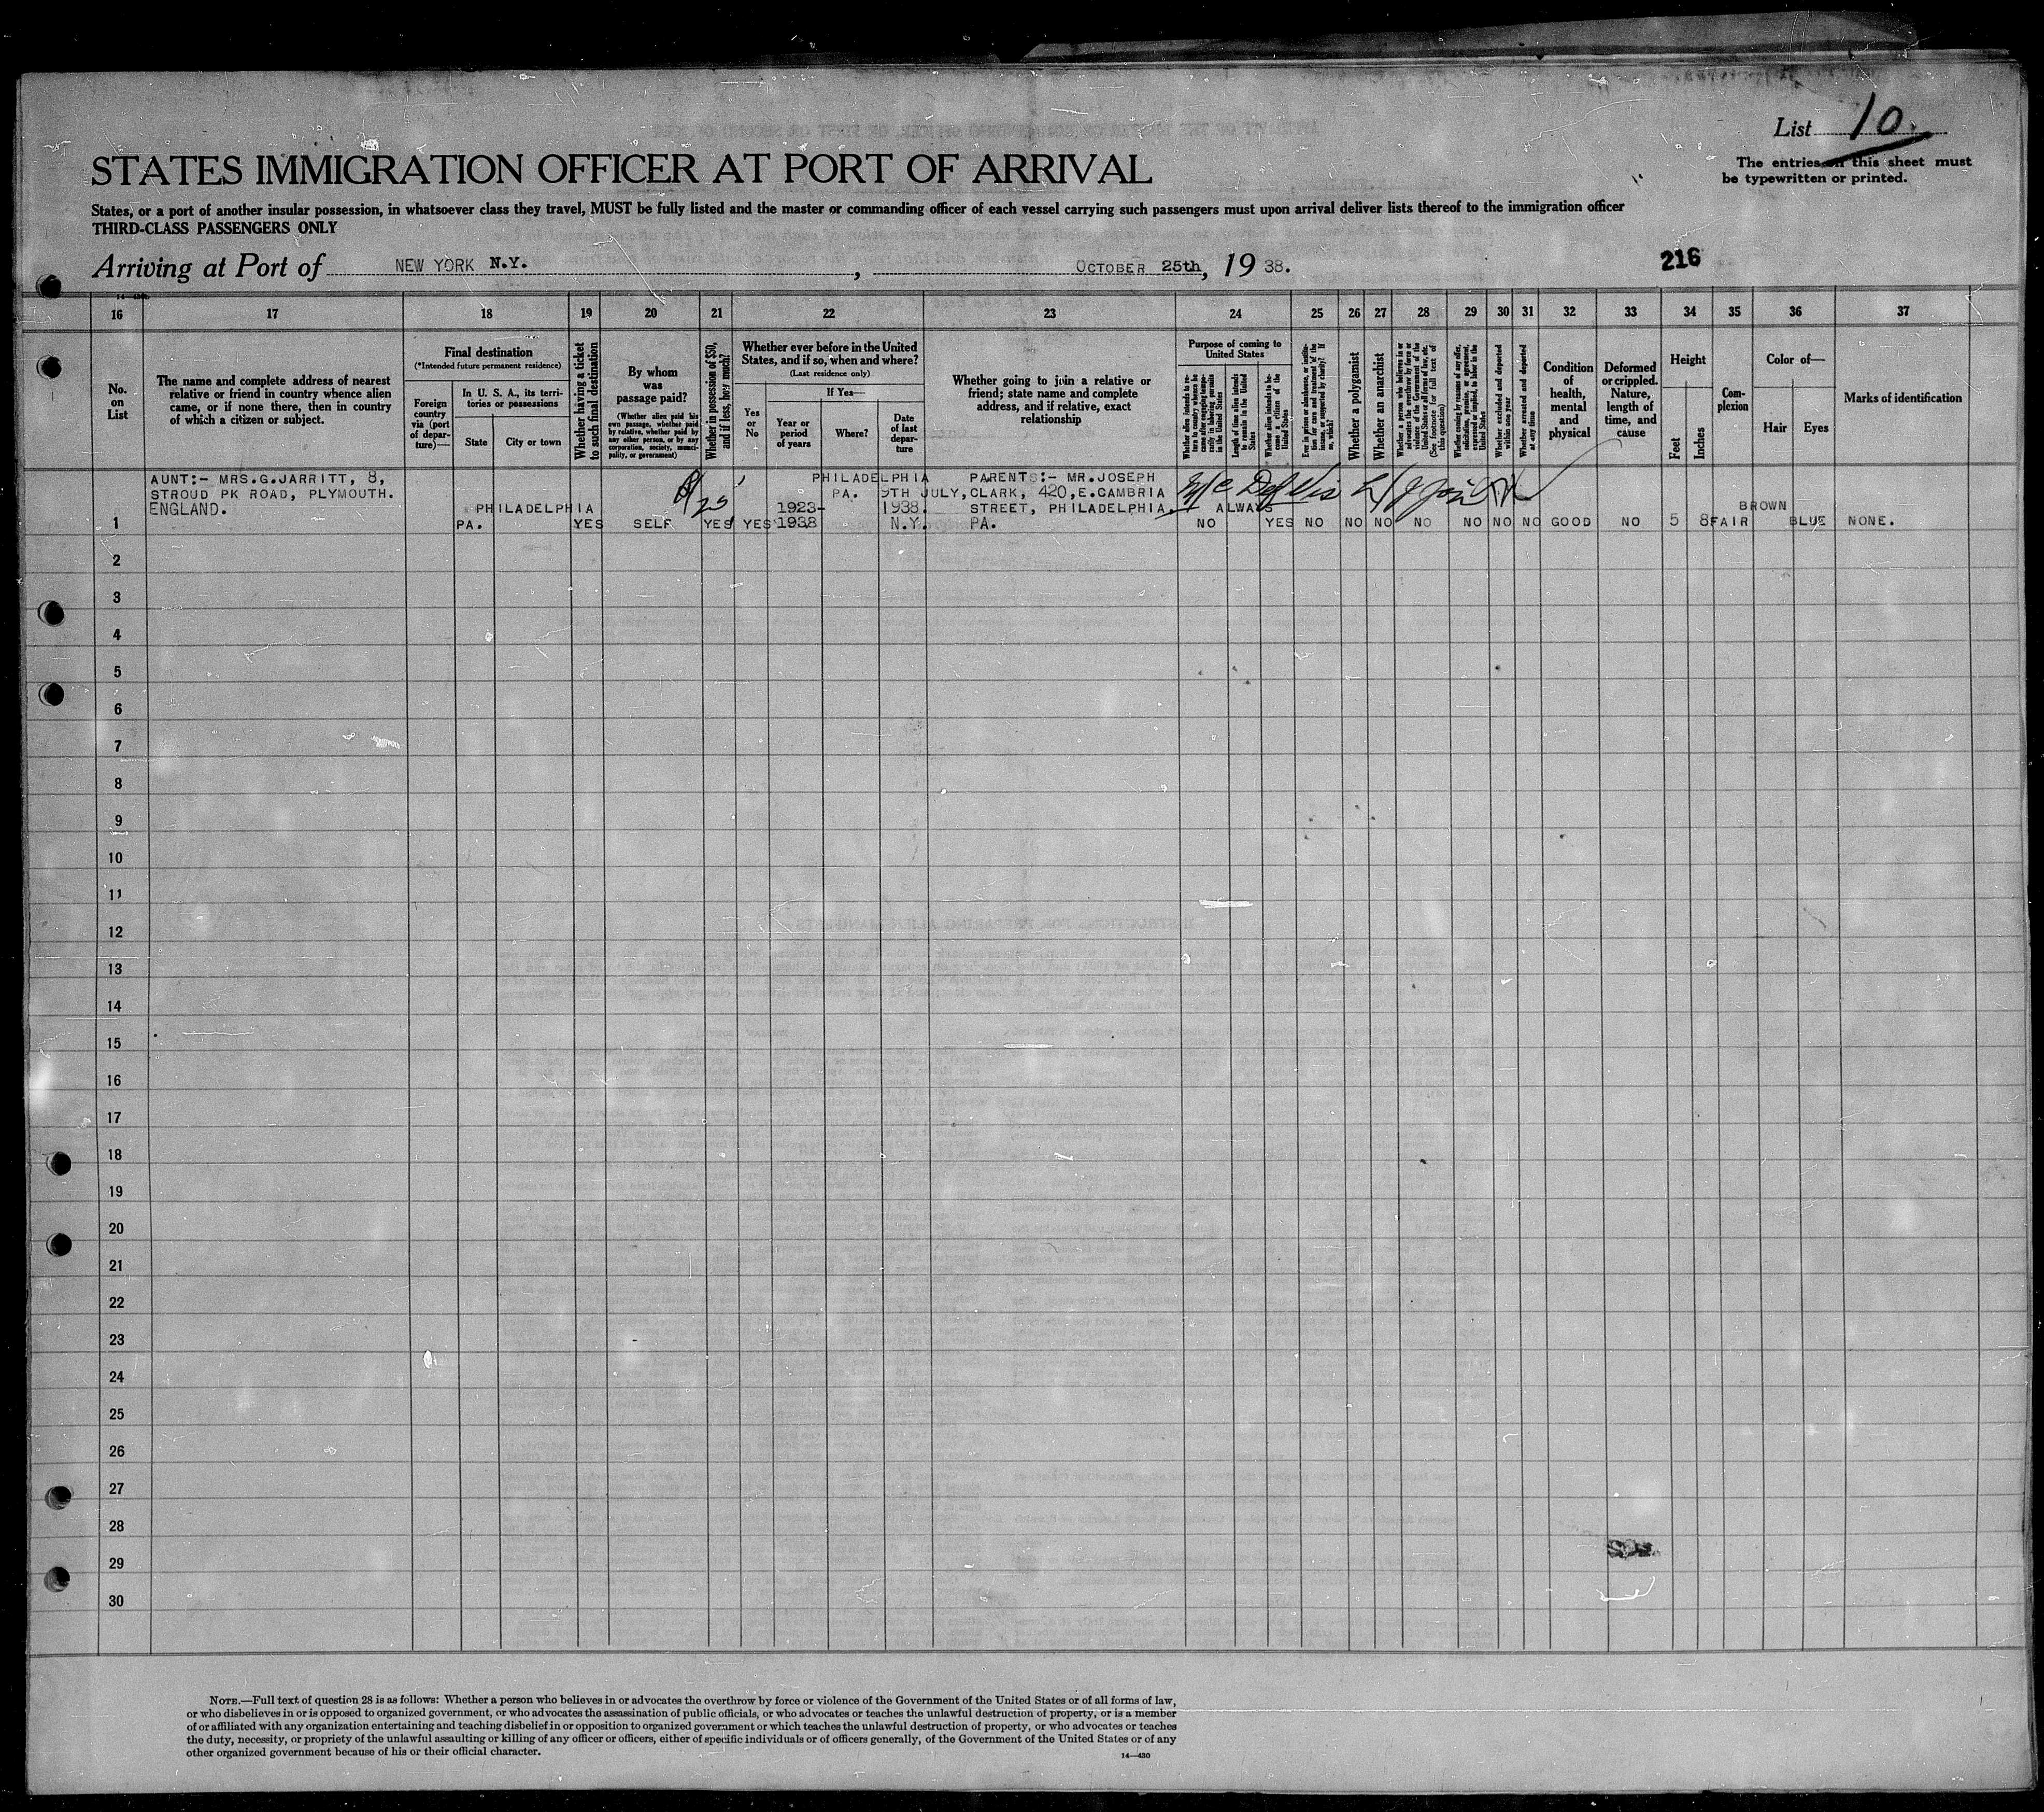 List 10.
The entries on this sheet must
be typewritten or printed.
STATES IMMIGRATION OFFICER AT PORT OF ARRIVAL
States, or a port of another insular possession, in whatsoever class they travel, MUST be fully listed and the master or commanding officer of each vessel carrying such passengers must upon arrival deliver lists thereof to the immigration officer
THIRD-CLASS PASSENGERS ONLY
Arriving at Port of NEW YORK N.Y., OCTOBER 25th, 19 38.
216
16 17 18 19 20 21 22 23 24 25 26 27 28 29 30 31 32 33 34 35 36 37
No.
on
List
The name and complete address of nearest
relative or friend in country whence alien
came, or if none there, then in country
of which a citizen or subject.
Final destination
(*Intended future permanent residence)
Foreign
country
via (port
of depar-
ture)—
In U. S. A., its terri-
tories or possessions
State
City or town
Whether having a ticket
to such final destination
By whom
was
passage paid?
(Whether alien paid his
own passage, whether paid
by relative, whether paid by
any other person, or by any
corporation, society, munici-
pality, or government)
Whether in possession of $50,
and if less, how much?
Whether ever before in the United
States, and if so, when and where?
(Last residence only)
Yes
or
No
If Yes—
Year or
period
of years
Where?
Date
of last
depar-
ture
Whether going to join a relative or
friend; state name and complete
address, and if relative, exact
relationship
Purpose of coming to
United States
Whether alien intends to re-
turn to country whence he
came after engaging tempo-
rarily in laboring pursuits
in the United States
Length of time alien intends
to remain in the United
States
Whether alien intends to be-
come a citizen of the
United States
Ever in prison or almshouse, or institu-
tion for care and treatment of the
insane, or supported by charity? If
so, which?
Whether a polygamist
Whether an anarchist
Whether a person who believes in or
advocates the overthrow by force or
violence of the Government of the
United States or all forms of law, etc.
(See footnote for full text of
this question)
Whether coming by reason of any offer,
solicitation, promise, or agreement,
expressed or implied, to labor in the
United States
Whether excluded and deported
within one year
Whether arrested and deported
at any time
Condition
of
health,
mental
and
physical
Deformed
or crippled.
Nature,
length of
time, and
cause
Height
Feet
Inches
Com-
plexion
Color of—
Hair
Eyes
Marks of identification
AUNT:- MRS.G.JARRITT, 8, PHILADELPHIA PARENTS:- MR.JOSEPH
STROUD PK ROAD, PLYMOUTH. PA. 9TH JULY, CLARK, 420,E.CAMBRIA
ENGLAND. PHILADELPHIA 1923- 1938. STREET, PHILADELPHIA, ALWAYS BROWN
1 PA. YES SELF YES YES 1938 N.Y. PA. NO YES NO NO NO NO NO NO NO GOOD NO 5 8 FAIR BLUE NONE.
2
3
4
5
6
7
8
9
10
11
12
13
14
15
16
17
18
19
20
21
22
23
24
25
26
27
28
29
30
NOTE.—Full text of question 28 is as follows: Whether a person who believes in or advocates the overthrow by force or violence of the Government of the United States or of all forms of law,
or who disbelieves in or is opposed to organized government, or who advocates the assassination of public officials, or who advocates or teaches the unlawful destruction of property, or is a member
of or affiliated with any organization entertaining and teaching disbelief in or opposition to organized government or which teaches the unlawful destruction of property, or who advocates or teaches
the duty, necessity, or propriety of the unlawful assaulting or killing of any officer or officers, either of specific individuals or of officers generally, of the Government of the United States or of any
other organized government because of his or their official character.
14—430